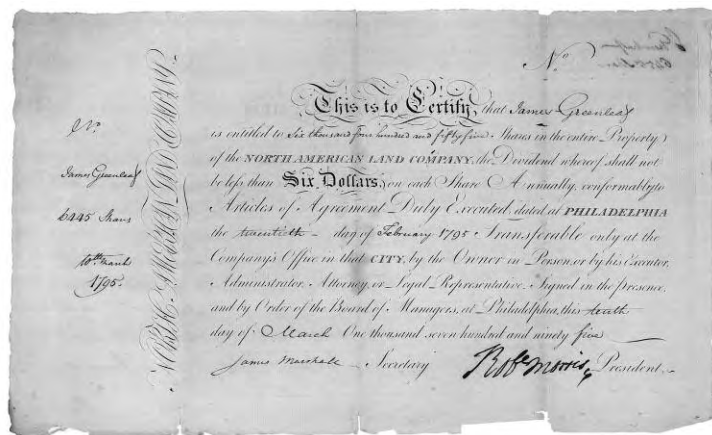 No.
This is to Certify, that James Greenleaf
is entitled to Six thousand four hundred and fifty five Shares in the entire Property
of the NORTH AMERICAN LAND COMPANY, the Dividend whereof shall not
be less than Six Dollars, on each Share Annually, conformably to
Articles of Agreement Duly Executed, dated at PHILADELPHIA
the twentieth day of February 1795 Transferable only at the
Company's Office in that CITY, by the Owner in Person, or by his Executor,
Administrator, Attorney, or Legal Representative. Signed in the presence,
and by Order of the Board of Managers, at Philadelphia, this tenth
day of March One thousand seven hundred and ninety five
James Marshall Secretary Robt Morris President
No.
James Greenleaf
6445 Shares
10th March
1795.
NORTH AMERICAN LAND COMPANY